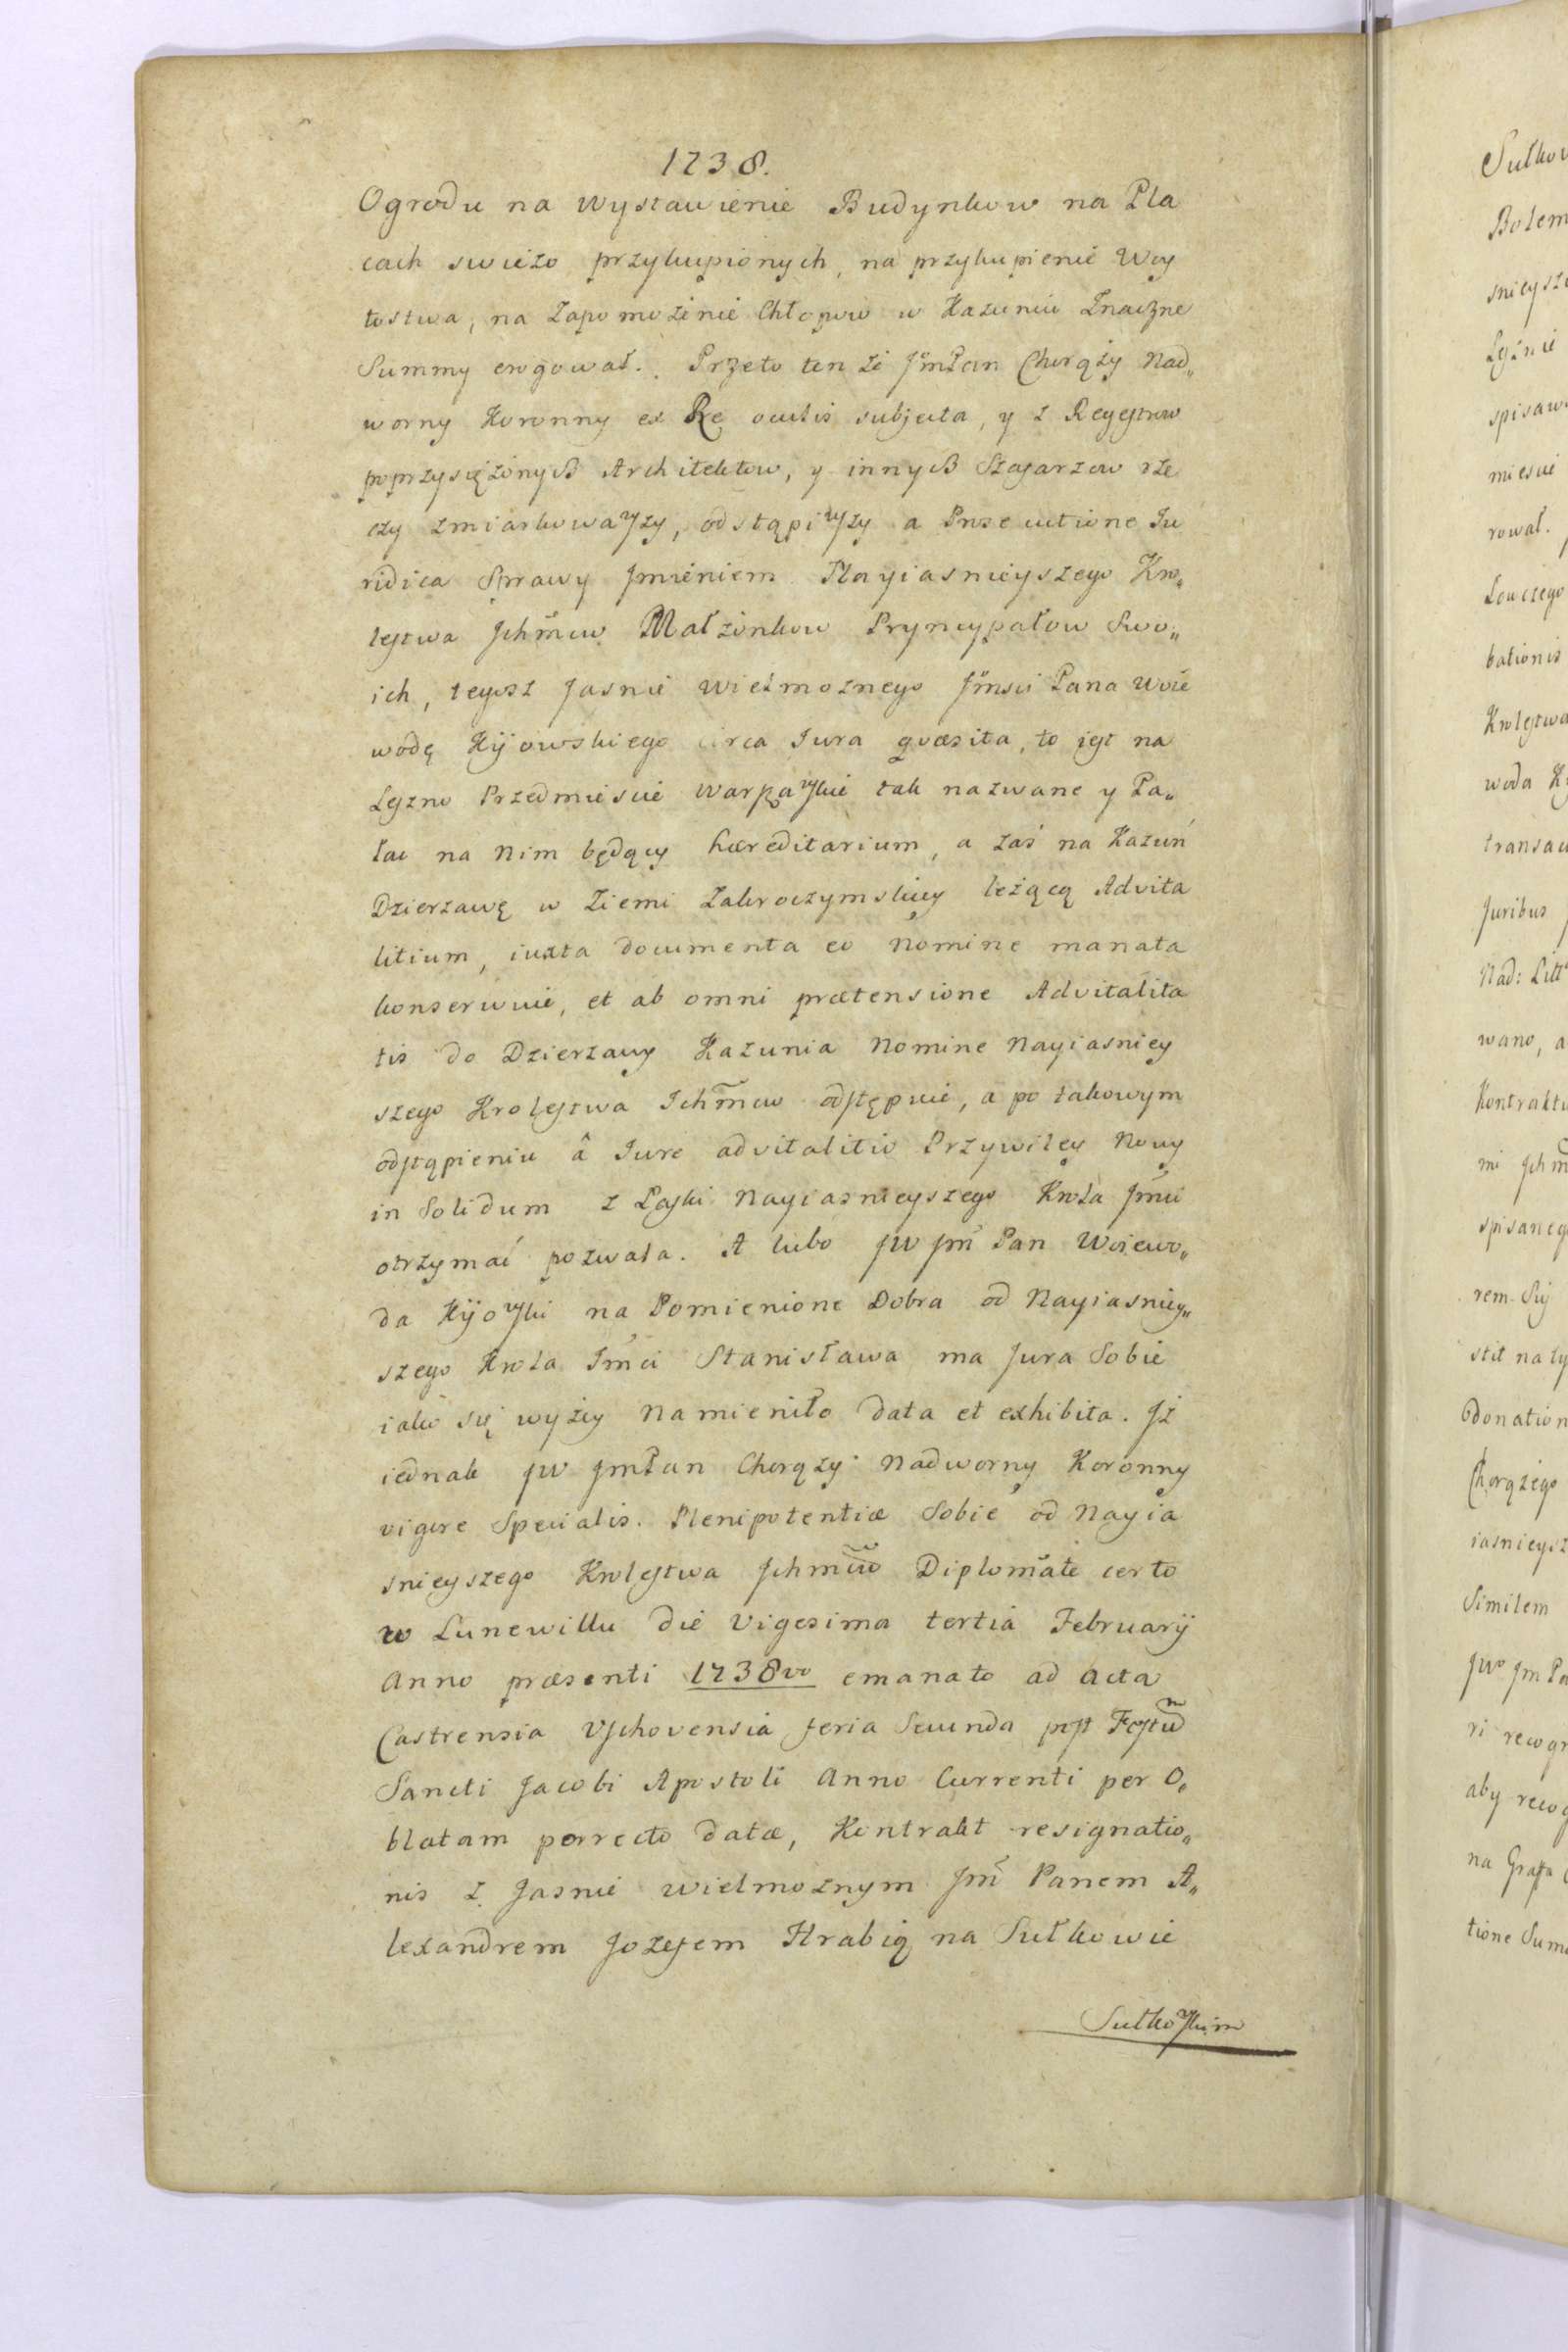 1738.
Ogrodu na wystawienie Budynkow na Pla
cach swieżo przykupionych, na przykupienie Woy
tostwa, na Zapomożenie Chłopow w Kazuniu Znaczne
Summy erogował. Przeto ten że JmPan Chorąży Nad„
worny Koronny ex Re oculis subjecta, y z Regestrow
poprzysiężonych Architektow, y innych Szafarzow rze
czy zmiarkowawszy, odstąpiwszy a Prosecutione Iu
ridica Sprawy Jmieniem Nayiasnieyszego Kro„
lestwa Jchmciow Małżonkow Pryncypałow Swo„
ich, tegosz Jasnie wielmoznego Jmsci Pana Woie
wodę Kijowskiego circa Iura quæsita, to jest na
Leszno Przedmiescie Warszawskie tak nazwane y Pa„
łac na nim będący hæreditarium, a zaś na Kazuń
Dzierzawę w Ziemi Zakroczymskiey leżącą Advita
litium, iuxta documenta eo nomine manata
konserwuie, et ab omni prætensione Advitalita
tis do Dzierzawy Kazunia Nomine Nayiasniey
szego Krolestwa Ichmciow odstępuie, a po takowym
odstąpieniu â Iure advitalitio Przywiley Nowy
in Solidum z Łaski Nayiasnieyszego Krola Jmci
otrzymać pozwala. A lubo JW Jm Pan Woiewo„
da Kijowski na Pomienione Dobra od Nayiasniey„
szego Krola Imci Stanisława ma Jura Sobie
iako się wyżey namieniło data et exhibita. Jż
iednak JW JmPan Chorąży Nadworny Koronny
vigore Specialis Plenipotentiæ Sobie od Nayia
snieyszego Krolestwa Jchmciow Diplomate certo
w Lunewillu die Vigesima tertia Februarij
Anno præsenti 1738vo emanato ad acta
Castrensia Vschovensia feria Secunda post Festum
Sancti Jacobi Apostoli Anno Currenti per O„
blatam porrecto datæ, Kontrakt resignatio„
nis z Jasnie wielmoznym Jm Panem A„
lexandrem Jozefem Hrabią na Sułkowie
Sułkowskim
Sułkow
Bolem
snieysze
spisaw
miescie
rował.
Łowczego
bationis
Krolestwa
woda K
transac
Juribus
Nad: Litt
wano, a
Kontraktu
mi Jchm
spisaneg
rem
stit na ty
donation
Chorążego
iasnieysz
Similem
JW Jm Pa
ri recogn
aby recog
na
tione Sum